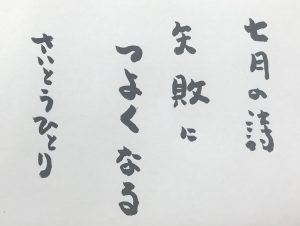 七月の詩
失敗に
つよくなる
さいとうひとり